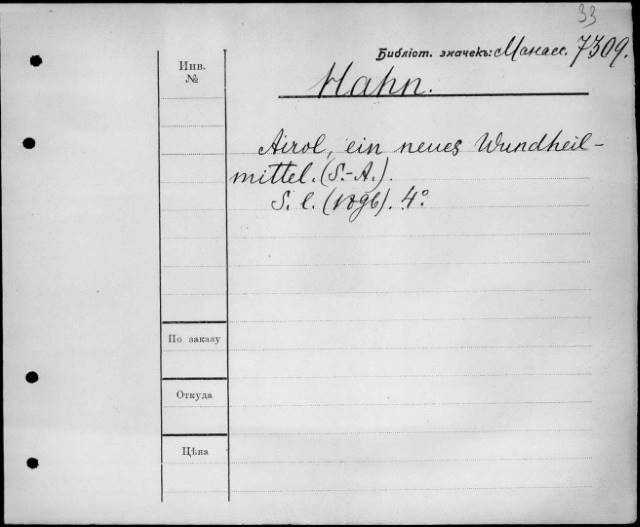 33
Библіот. значекъ: Манасс. 7309.
Инв.
№
Hahn.
Airol, ein neues Wundheil-
mittel. (S.-A.).
S. l. (1896). 4°.
По заказу
Откуда
Цѣна